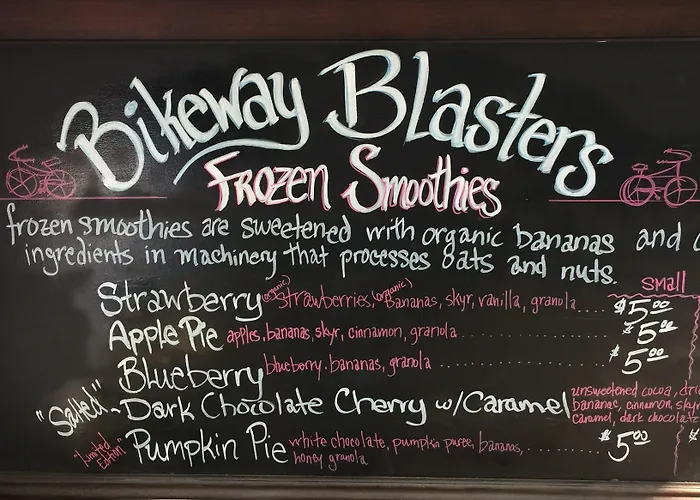 Bikeway Blasters
Frozen Smoothies
frozen smoothies are sweetened with organic bananas and
ingredients in machinery that processes oats and nuts.
small
Strawberry (organic) strawberries, (organic) bananas, skyr, vanilla, granola.... $5.00
Apple Pie apples, bananas, skyr, cinnamon, granola ............ $5.00
Blueberry blueberry, bananas, granola ............ $5.00
"Salted" ~Dark Chocolate Cherry w/Caramel unsweetened cocoa,
bananas, cinnamon, skyr
caramel, dark chocolate
"Limited Edition" Pumpkin Pie white chocolate, pumpkin puree, bananas, ......... $5.00
honey granola